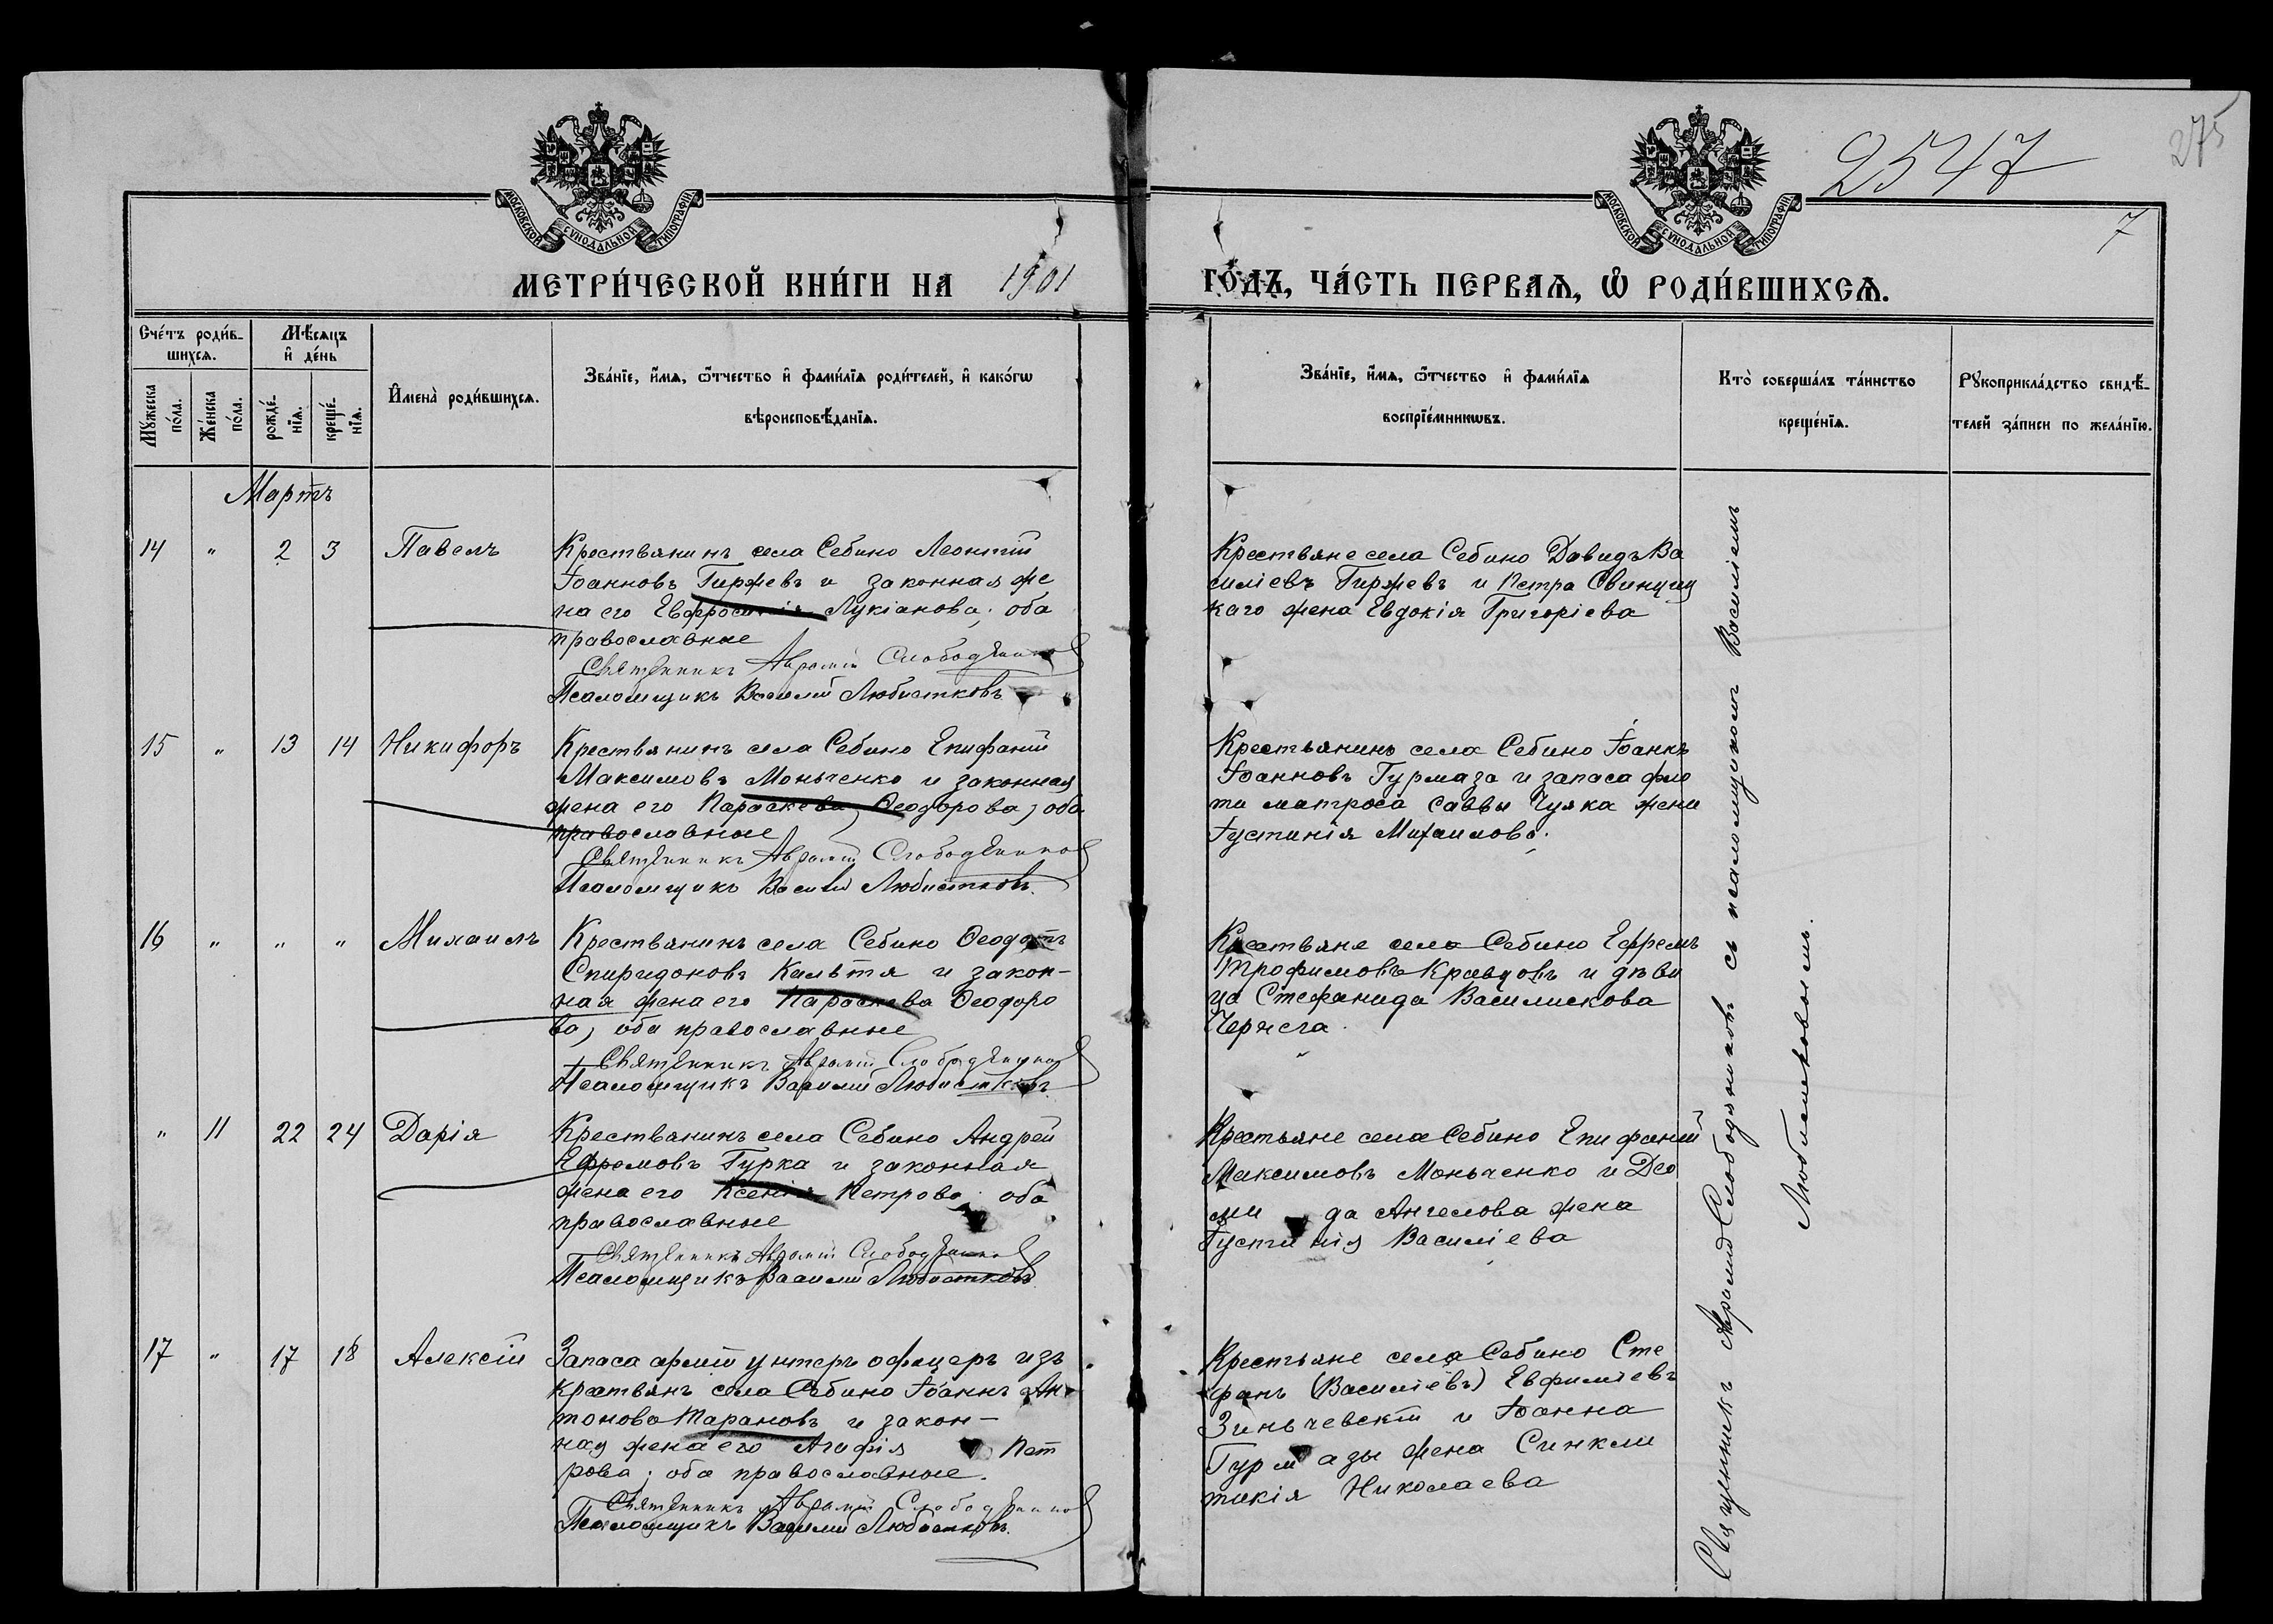 2547
275
7
МОСКОВСКОЙ СѴНОДАЛЬНОЙ ТИПОГРАФІИ
МОСКОВСКОЙ СѴНОДАЛЬНОЙ ТИПОГРАФІИ
МЕТРИ́ЧЕСКОЙ КНИ́ГИ НА 1901
ГО́ДЪ, ЧА́СТЬ ПЕРВАѦ, Ѡ РОДИ́ВШИХСѦ.
Сче́тъ роди́в-
шихсѧ.
Мꙋ́жеска
по́ла.
Же́нска
по́ла.
Мѣ́сѧцъ
и҆ де́нь
рожде́-
нїѧ.
креще́-
нїѧ.
И҆мена̀ роди́вшихсѧ.
Зва́нїе, и҆́мѧ, ѻ҆́тчество и҆ фами́лїѧ роди́телей, и҆ како́гѡ
вѣроисповѣ́данїѧ.
Зва́нїе, и҆́мѧ, ѻ҆́тчество и҆ фами́лїѧ
воспрїе́мникѡвъ.
Кто̀ соверша́лъ та́инство
креще́нїѧ.
Рꙋкоприкла́дство свидѣ́-
телей за́писи по жела́нїю.
Мартъ
14 " 2 3 Павелъ
Крестьянинъ села Себино Леонтій
Іоанновъ Гиржевъ и законная же
на его Евфросинія Лукіанова; оба
православные
Священникъ Аврамій Слободяников
Псаломщикъ Василій Любистковъ
Крестьяне села Себино Давидъ Ва
силіевъ Гиржевъ и Петра Свинциц
каго жена Евдокія Григоріева
15 " 13 14 Никифоръ
Крестьянинъ села Себино Епифаній
Максимовъ Моньченко и законная
жена его Параскева Ѳеодорова, оба
православные
Священникъ Аврамій Слободяников
Псаломщикъ Василій Любистковъ.
Крестьянинъ села Себино Іоаннъ
Іоанновъ Гурмаза и запаса фло
та матроса Саввы Чуяка жена
Іустинія Михаилова.
16 " " " Михаилъ
Крестьянинъ села Себино Ѳеодотъ
Спиридоновъ Кильтя и закон-
ная жена его Параскева Ѳеодоро
ва, оба православные
Священникъ Аврамій Слободяников
Псаломщикъ Василій Любистковъ
Крестьяне села Себино Ефремъ
Трофимовъ Кравцовъ и дѣви
ца Стефанида Василискова
Чернега
" 11 22 24 Дарія
Крестьянинъ села Себино Андрей
Ефремовъ Гурка и законная
жена его Ксенія Петрова; оба
православные
Священникъ Аврамій Слободяников
Псаломщикъ Василій Любистковъ
Крестьяне села Себино Епифаній
Максимовъ Моньченко и Део
ми да Ангелова жена
Іустинія Василіева
17 " 17 18 Алексій
Запаса арміи унтеръ офицеръ изъ
крестьянъ села Себино Іоаннъ Ан
тоновъ Тарановъ и закон-
ная жена его Агафія Пет
рова; оба православные.
Священникъ Аврамій Слободяников
Псаломщикъ Василій Любистковъ.
Крестьяне села Себино Сте
фанъ (Василіевъ) Евфиміевъ
Зиньчевскій и Іоанна
Гурм азы жена Синкли
тикія Николаева
Священникъ Аврамій Слободяниковъ съ псаломщикомъ Василіемъ
Любистковымъ.